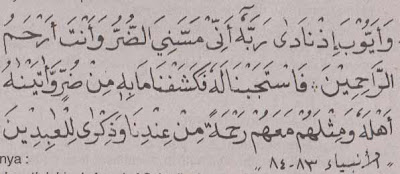 وَأَيُّوْبَ إِذْ نَادَى رَبَّهُ أَنِّيْ مَسَّنِيَ الضُّرُّ وَأَنْتَ أَرْحَمُ
الرَّاحِمِيْنَ ۞ فَاسْتَجَبْنَا لَهُ فَكَشَفْنَا مَا بِهِ مِنْ ضُرٍّ وَّأٰتَيْنٰهُ
أَهْلَهُ وَمِثْلَهُمْ مَعَهُمْ رَحْمَةً مِنْ عِنْدِنَا وَذِكْرٰى لِلْعٰبِدِيْنَ
nya :
"الأنبياء ٨٣-٨٤"